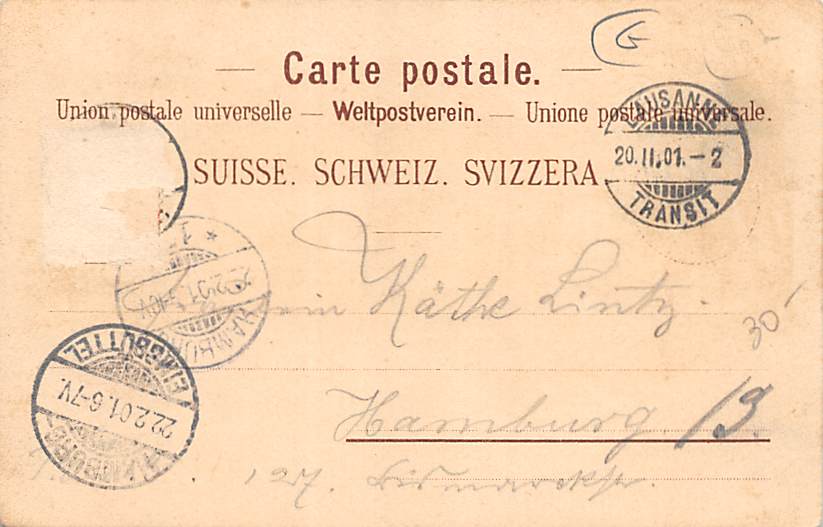 G
Carte postale.
Union postale universelle — Weltpostverein. — Unione postale universale.
LAUSANNE
20.II.01.–2
TRANSIT
SUISSE. SCHWEIZ. SVIZZERA
* 1
22.2.01
HAMBURG
Käthe Lintz.
30
EIMSBÜTTEL
22.2.01.6-7V.
HAMBURG-
Hamburg. 13.
127. Bismarckstr.